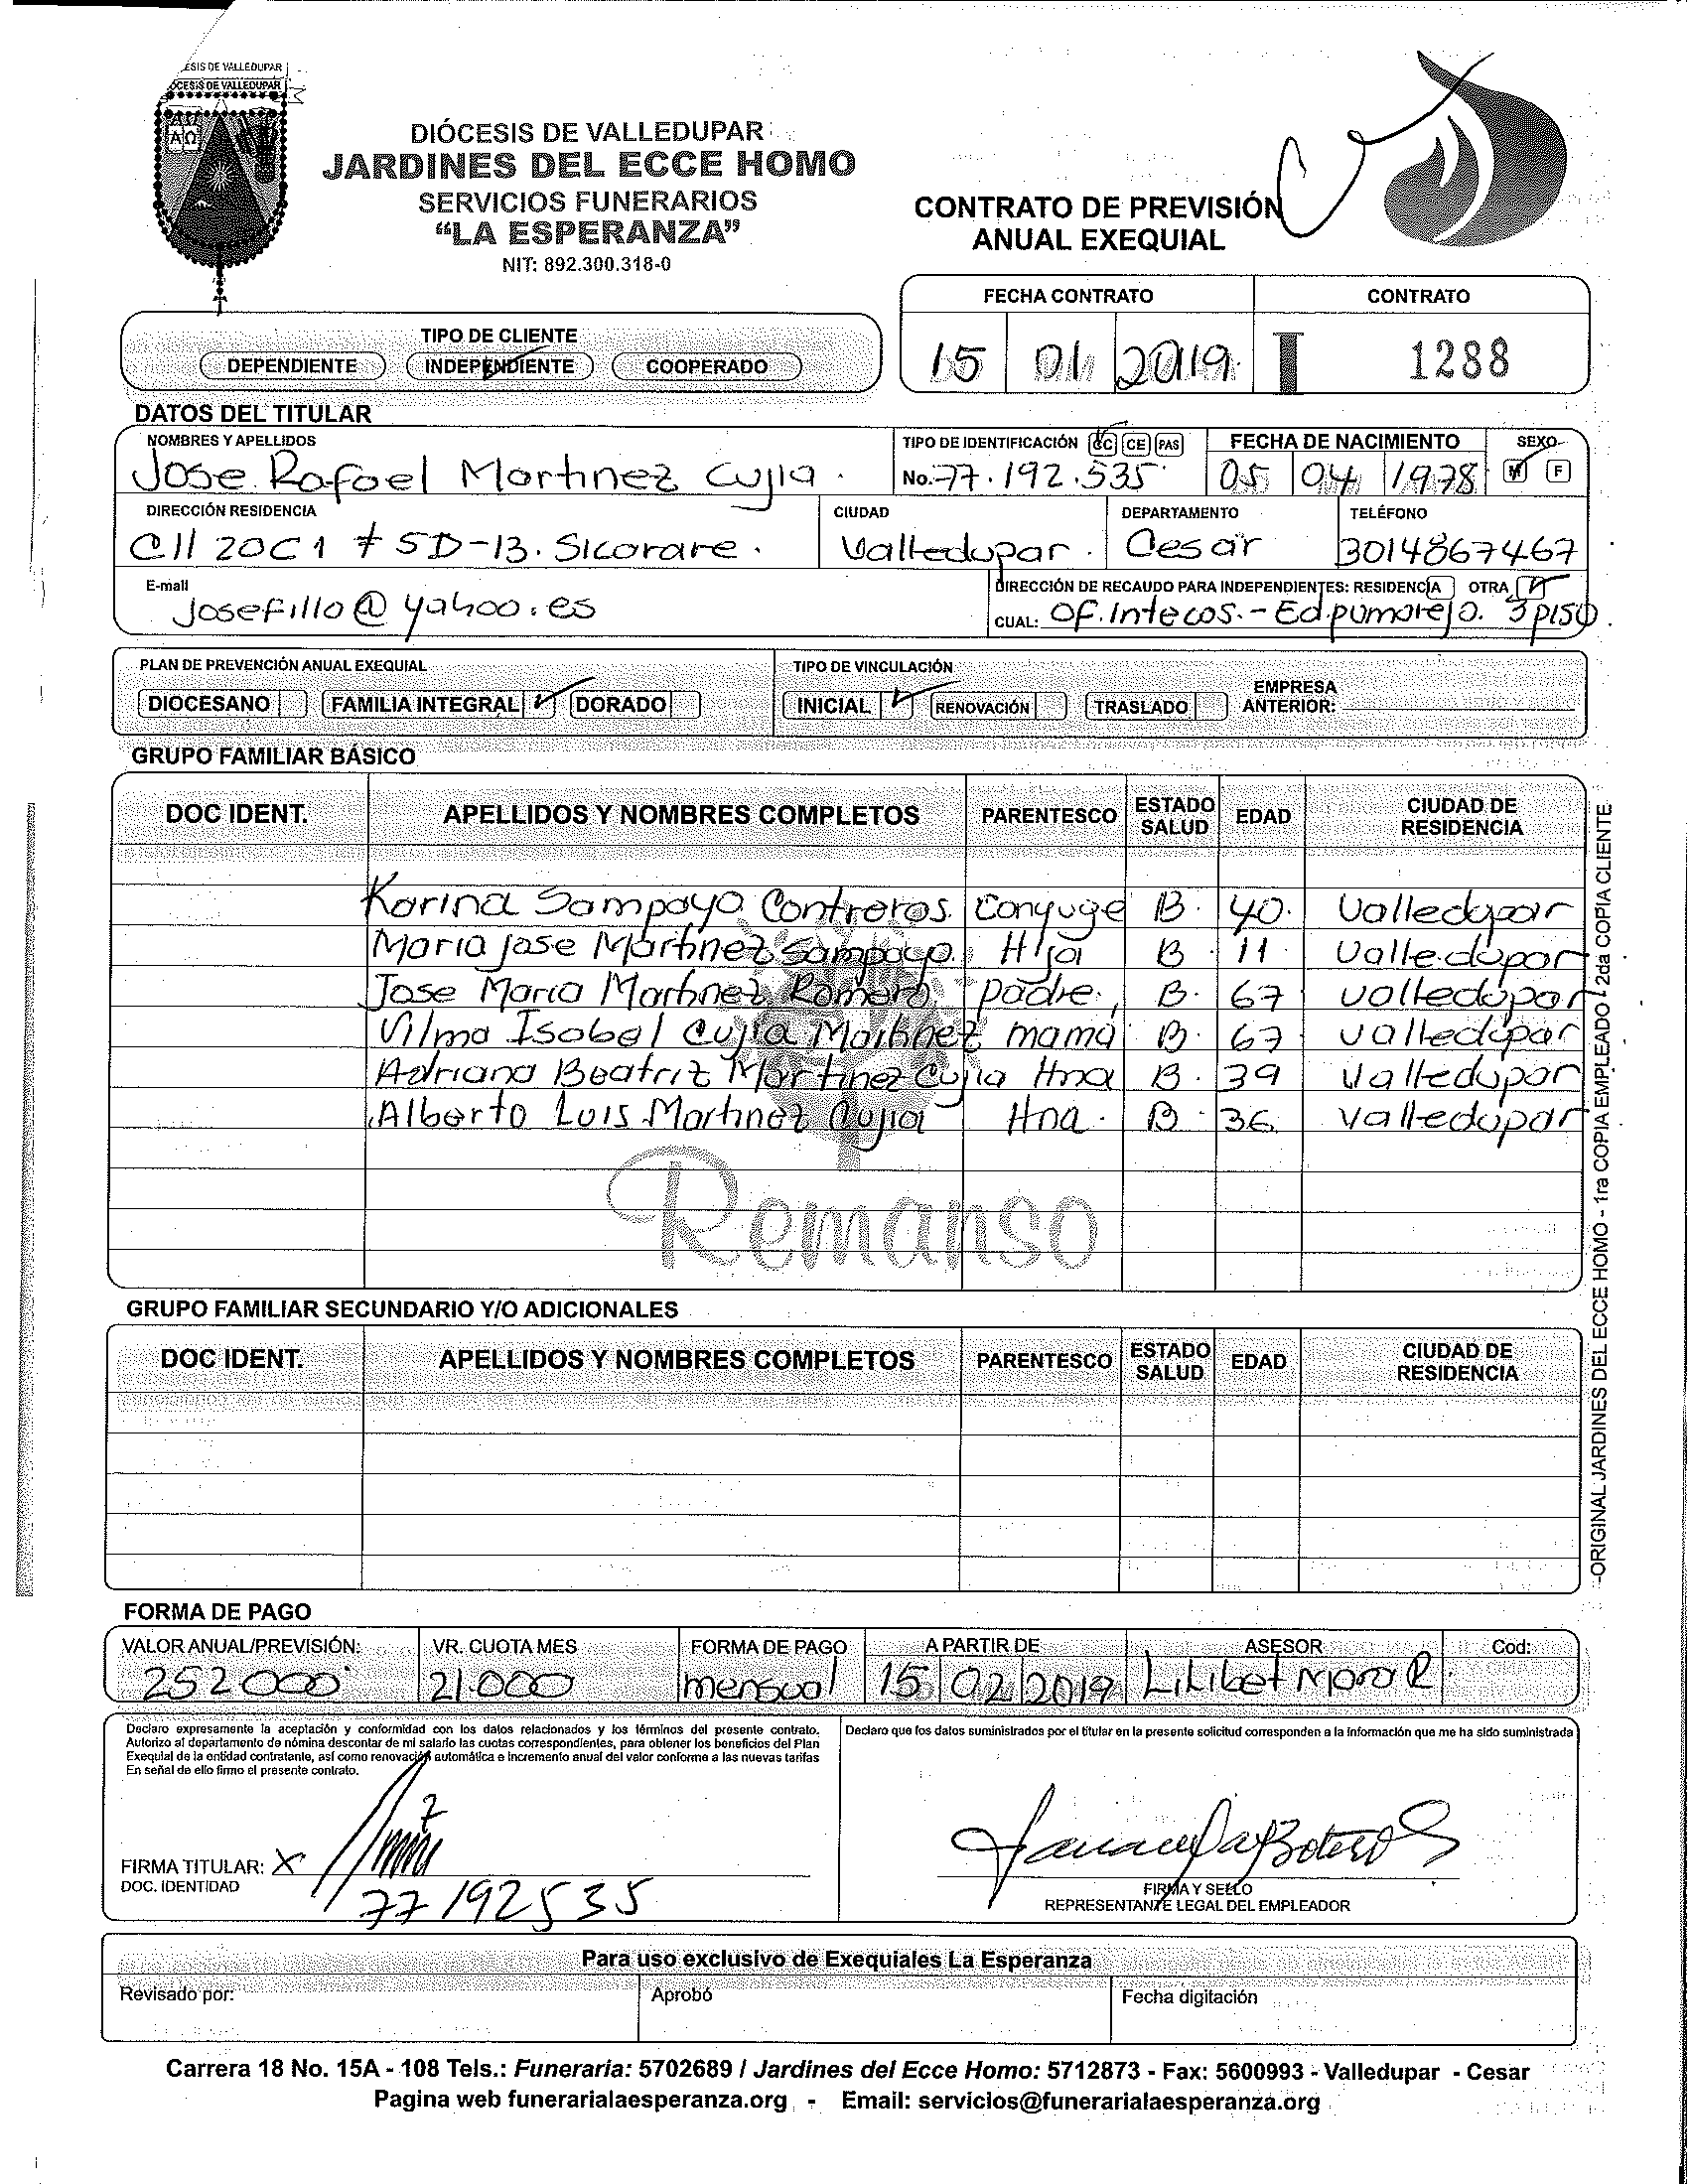 ESIS DE VALLEDUPAR
OCESIS DE VALLEDUPAR
A Ω
DIÓCESIS DE VALLEDUPAR
JARDINES DEL ECCE HOMO
SERVICIOS FUNERARIOS
“LA ESPERANZA”
NIT: 892.300.318-0
CONTRATO DE PREVISIÓN
ANUAL EXEQUIAL
FECHA CONTRATO CONTRATO
15 01 2019 I 1288
TIPO DE CLIENTE
DEPENDIENTE INDEPENDIENTE COOPERADO
DATOS DEL TITULAR
NOMBRES Y APELLIDOS TIPO DE IDENTIFICACIÓN CC CE PAS FECHA DE NACIMIENTO SEXO
Jose Rafael Martinez Cujia. No. 77.192.535 05 04 1978 M F
DIRECCIÓN RESIDENCIA CIUDAD DEPARTAMENTO TELÉFONO
Cll 20C1 # 5D-13. Sicorare. Valledupar. Cesar 3014867467
E-mail DIRECCIÓN DE RECAUDO PARA INDEPENDIENTES: RESIDENCIA OTRA
Josefillo@yahoo.es CUAL: Of. Intecos. - Ed. pumarejo. 3 piso.
PLAN DE PREVENCIÓN ANUAL EXEQUIAL TIPO DE VINCULACIÓN
DIOCESANO FAMILIA INTEGRAL DORADO INICIAL RENOVACIÓN TRASLADO EMPRESA ANTERIOR:
GRUPO FAMILIAR BÁSICO
DOC IDENT. APELLIDOS Y NOMBRES COMPLETOS PARENTESCO ESTADO SALUD EDAD CIUDAD DE RESIDENCIA
Karina Sampayo Contreras. Conyuge B. 40. Valledupar
Maria Jose Martinez Sampayo. Hija B. 11 Valledupar
Jose Maria Martinez Romero. padre. B. 67 valledupar
Vilma Isabel Cujia Martinez mamá B. 67 valledupar
Adriana Beatriz Martinez Cujia Hna B. 39 Valledupar
Alberto Luis Martinez Cujia Hna. B. 36 valledupar
Remanso
GRUPO FAMILIAR SECUNDARIO Y/O ADICIONALES
DOC IDENT. APELLIDOS Y NOMBRES COMPLETOS PARENTESCO ESTADO SALUD EDAD CIUDAD DE RESIDENCIA
-ORIGINAL JARDINES DEL ECCE HOMO - 1ra COPIA EMPLEADO - 2da COPIA CLIENTE
FORMA DE PAGO
VALOR ANUAL/PREVISIÓN: VR. CUOTA MES FORMA DE PAGO A PARTIR DE ASESOR Cod:
252000 21.000 mensual 15 02 2019 Lilibet Mora R.
Declaro expresamente la aceptación y conformidad con los datos relacionados y los términos del presente contrato.
Autorizo al departamento de nómina descontar de mi salario las cuotas correspondientes, para obtener los beneficios del Plan
Exequial de la entidad contratante, así como renovación automática e incremento anual del valor conforme a las nuevas tarifas
En señal de ello firmo el presente contrato.
Declaro que los datos suministrados por el titular en la presente solicitud corresponden a la información que me ha sido suministrada
FIRMA TITULAR: X
DOC. IDENTIDAD
77192535
FIRMA Y SELLO
REPRESENTANTE LEGAL DEL EMPLEADOR
Para uso exclusivo de Exequiales La Esperanza
Revisado por: Aprobó Fecha digitación
Carrera 18 No. 15A - 108 Tels.: Funeraria: 5702689 / Jardines del Ecce Homo: 5712873 - Fax: 5600993 - Valledupar - Cesar
Pagina web funerarialaesperanza.org - Email: servicios@funerarialaesperanza.org